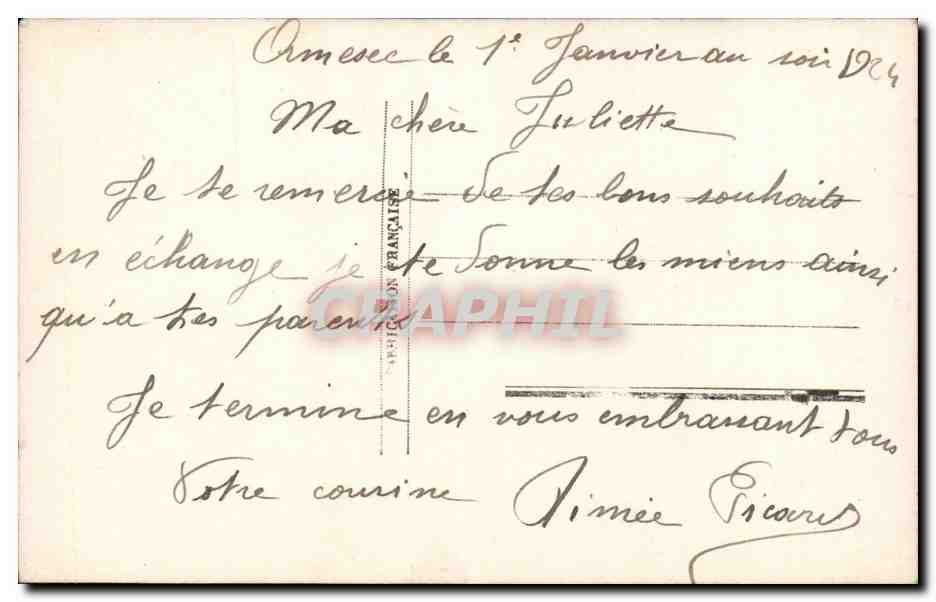 Ormesec le 1e Janvier au soir 1924
Ma chère Juliette
Je te remercie de tes bons souhaits
en échange je te donne les miens ainsi
qu'a tes parents
Je termine en vous embrassant tous
Votre cousine Aimée Picard
FABRICATION FRANÇAISE
CPAPHIL